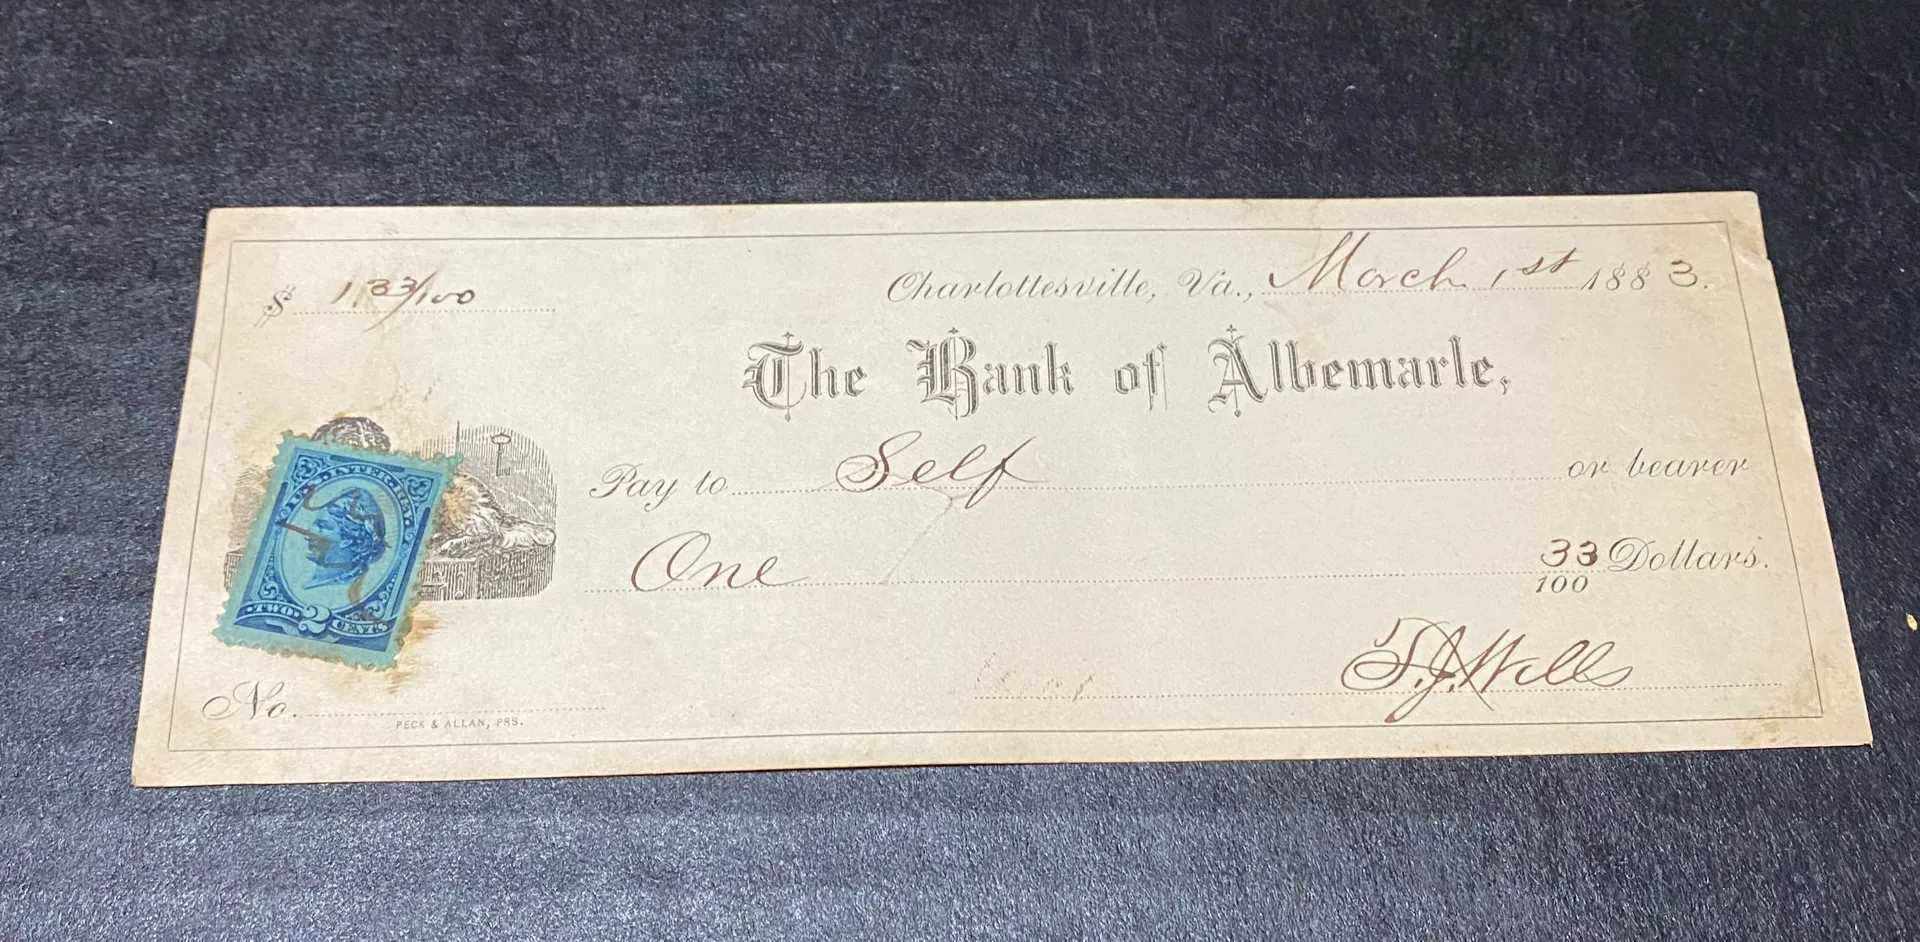 $ 1.33/100
Charlottesville, Va., March 1st 1883.
The Bank of Albemarle,
Pay to Self or bearer
One 33/100 Dollars.
U.S. INTER. REV.
TWO 2 CENTS
T.J. Wills
No.
PECK & ALLAN, PRS.